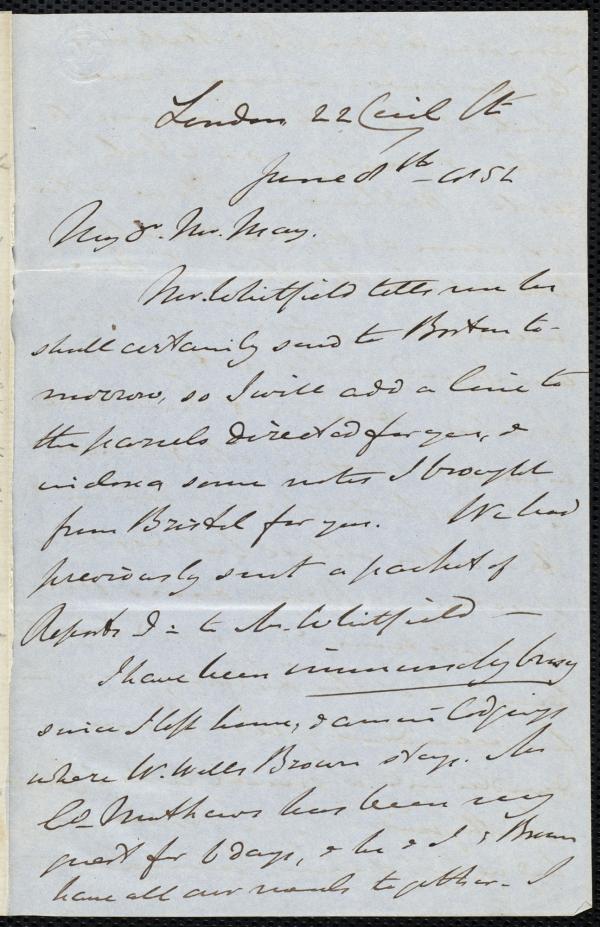 London, 22 Cecil St.
June 8th - 1852
My dr. Mr. May.
Mr. Whitfield tells me he
shall certainly send to Boston to-
morrow, so I will add a line to
the parcels directed for you, &
inclose some notes I brought
from Bristol for you. We had
previously sent a packet of
Reports to Mr. Whitfield —
I have been immensely busy
since I left home, & am in lodgings
where W. Wells Brown stays. Mr
Ed Mathews has been my
guest for 6 days, & he & I & Brown
have all our meals together - I